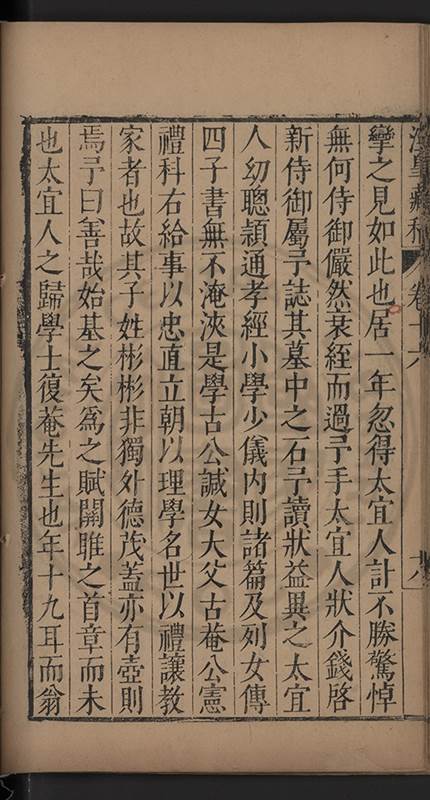 卷十六
十八
孿之見如此也居一年忽得太宜人訃不勝驚悼
無何侍御儼然衰絰而過予手太宜人狀介錢啓
新侍御屬予誌其墓中之石予讀狀益異之太宜
人幼聰頴通孝經小學少儀內則諸篇及列女傳
四子書無不淹浹是學古公諴女大父古菴公憲
禮科右給事以忠直立朝以理學名世以禮讓教
家者也故其子姓彬彬非獨外德茂蓋亦有壼則
焉予曰善哉始基之矣爲之賦關雎之首章而未
也太宜人之歸學士復菴先生也年十九耳而翁